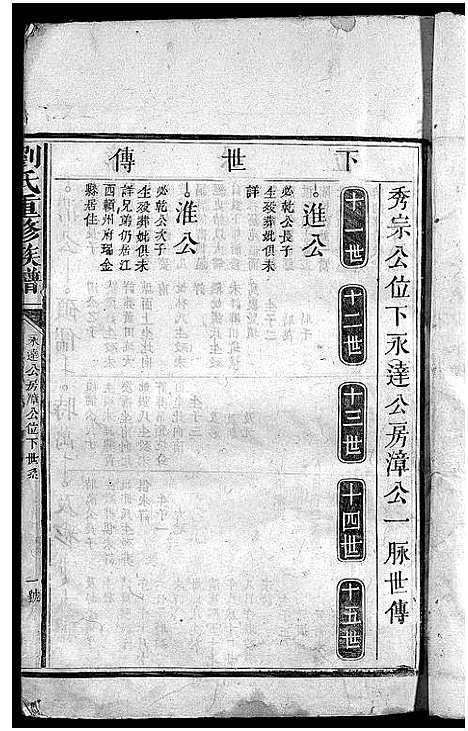 秀宗公位下永達公房漳公一脉世傳
下世傳
十一世
十二世
十三世
十四世
十五世
進公
必乾公長子
生殁葬妣俱未
詳
淮公
必乾公次子
生殁葬妣俱未
詳兄弟仍居江
西贛州府瑞金
縣居住
劉氏重修族譜
永達公房漳公位下世系
一號